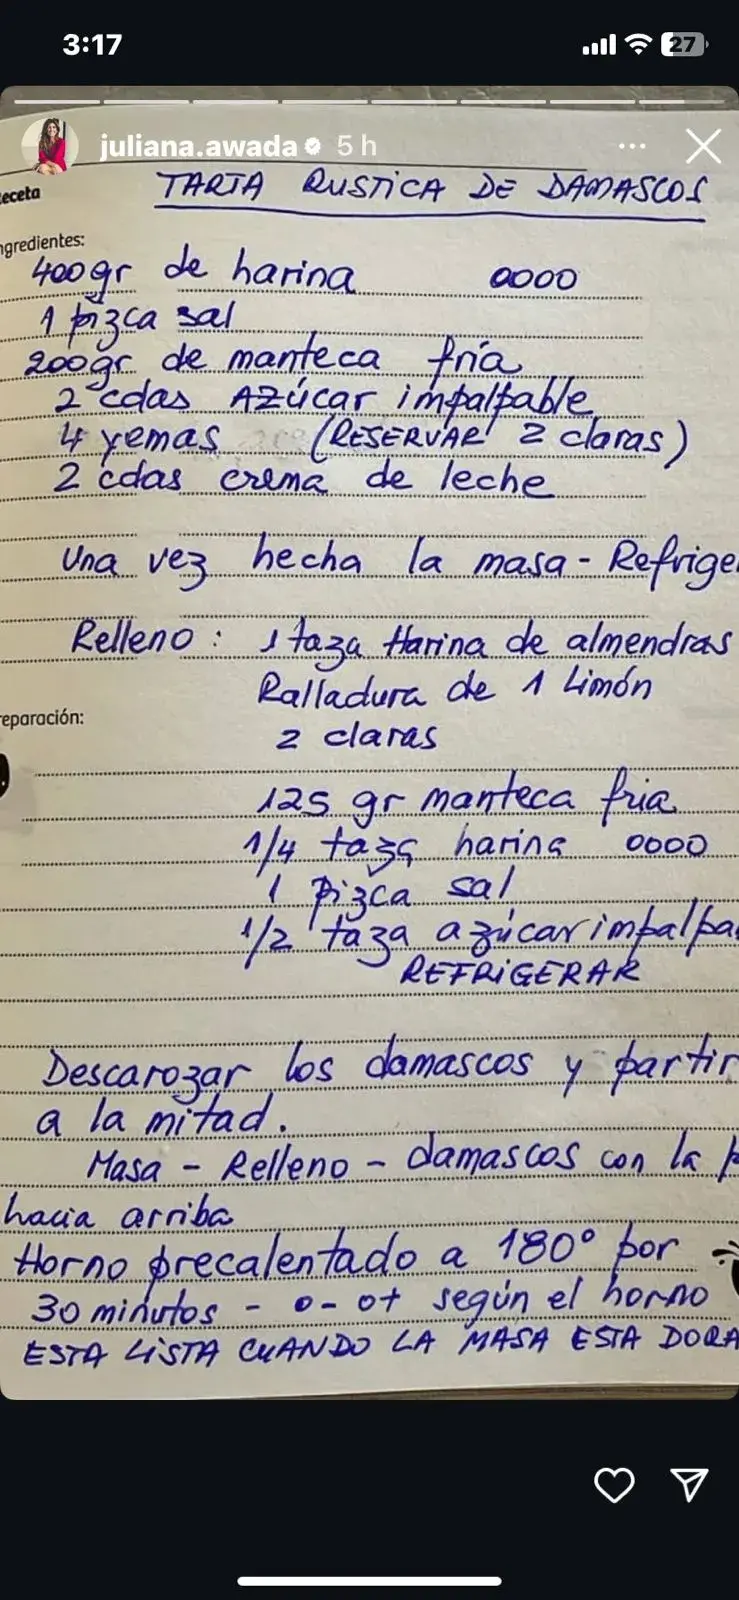 3:17
27
juliana.awada 5 h
eceta
TARTA RUSTICA DE DAMASCOS
ngredientes:
400gr de harina 0000
1 pizca sal
200gr de manteca fría
2 cdas AZÚCAR impalpable
4 yemas (RESERVAR 2 claras)
2 cdas crema de leche
Una vez hecha la masa - Refrige
Relleno: 1 taza Harina de almendras
Ralladura de 1 Limón
reparación:
2 claras
125 gr manteca fria
1/4 taza harina 0000
1 Pizca sal
1/2 taza azúcar impalpa
REFRIGERAR
Descarozar los damascos y partir
a la mitad.
Masa - Relleno - damascos con la p
hacia arriba
Horno precalentado a 180° por
30 minutos - o- o+ según el horno
ESTA LISTA CUANDO LA MASA ESTA DORA